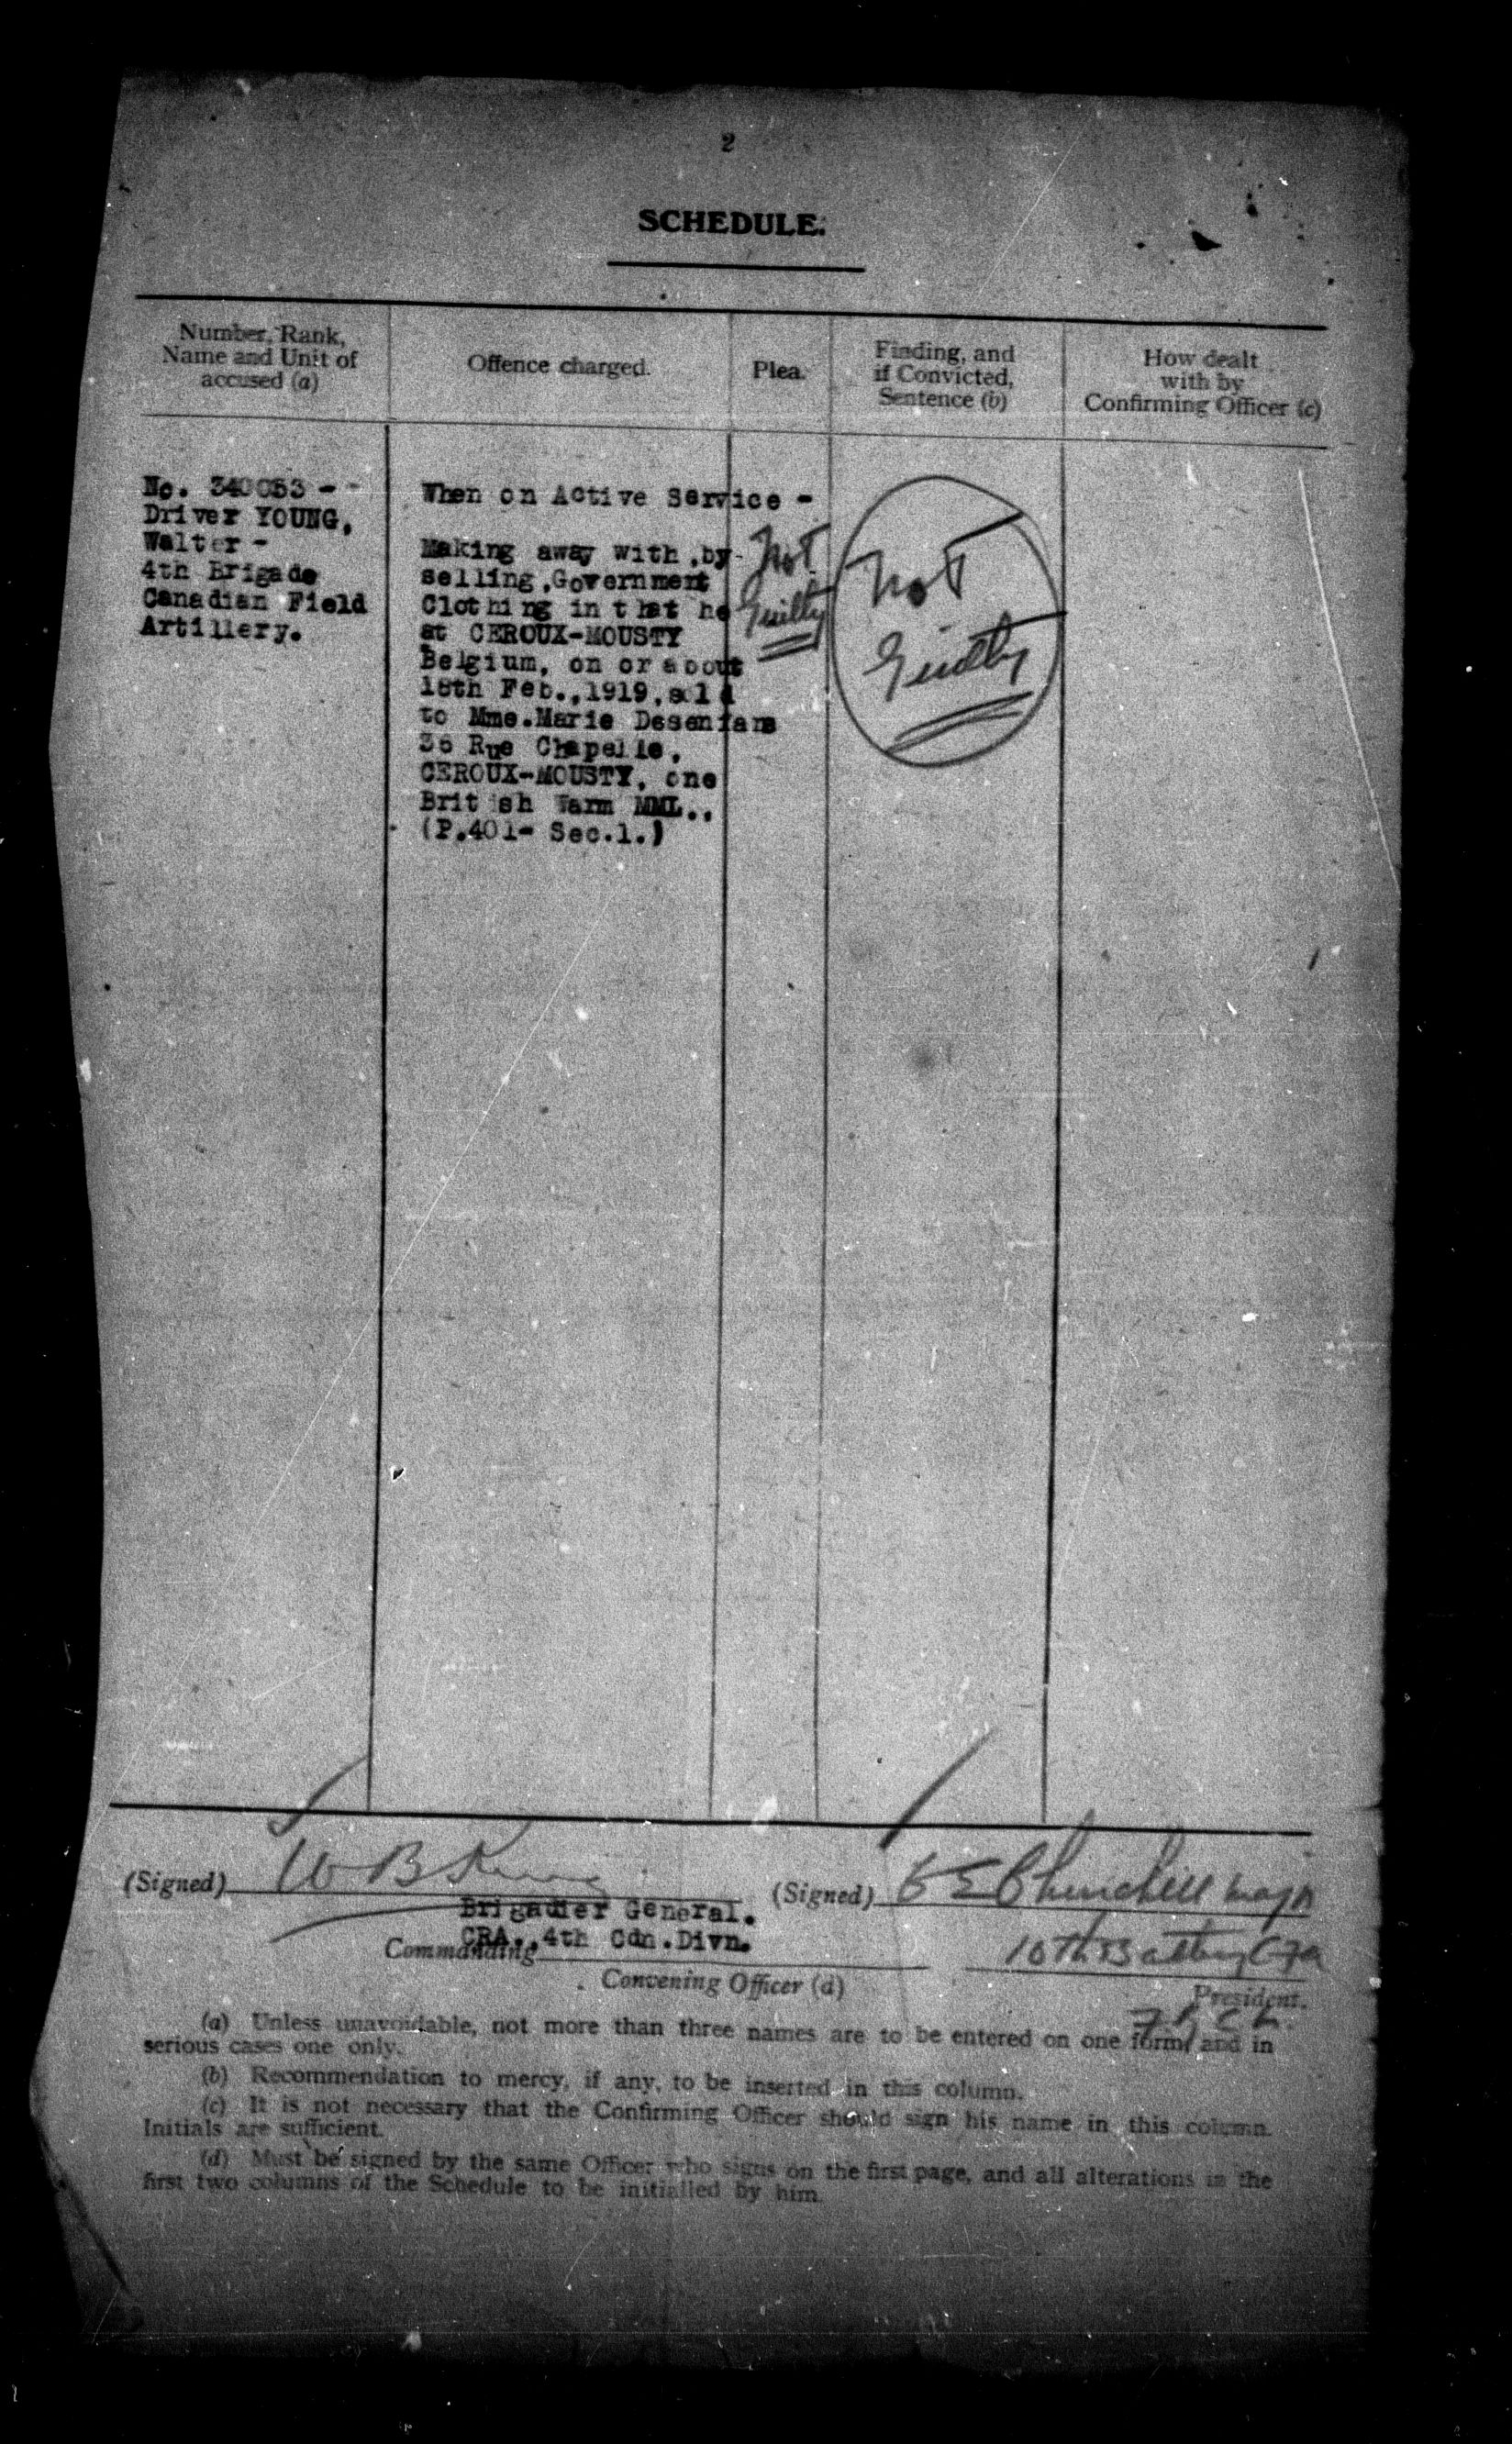 2
SCHEDULE.
Number, Rank,
Name and Unit of
accused (a)
Offence charged.
Plea.
Finding, and
if Convicted,
Sentence (b)
How dealt
with by
Confirming Officer (c)
No. 340053 - -
Driver YOUNG,
Walter -
4th Brigade
Canadian Field
Artillery.
When on Active Service -
Making away with ,by-
selling ,Government
Clothing in that he
at CEROUX-MOUSTY
Belgium, on or about
18th Feb.,1919,sold
to Mme.Marie Desenfans
36 Rue Chapelle,
CEROUX-MOUSTY, one
British Warm MML..
(P.401- Sec.1.)
Not
Guilty
Not
Guilty
(Signed) W B King
Brigadier General.
CRA.,4th Cdn.Divn.
Commanding
Convening Officer (d)
(Signed) Churchill Major
10th Battery CFA
President.
(a) Unless unavoidable, not more than three names are to be entered on one form, and in
serious cases one only.
(b) Recommendation to mercy, if any, to be inserted in this column.
(c) It is not necessary that the Confirming Officer should sign his name in this column.
Initials are sufficient.
(d) Must be signed by the same Officer who signs on the first page, and all alterations in the
first two columns of the Schedule to be initialled by him.